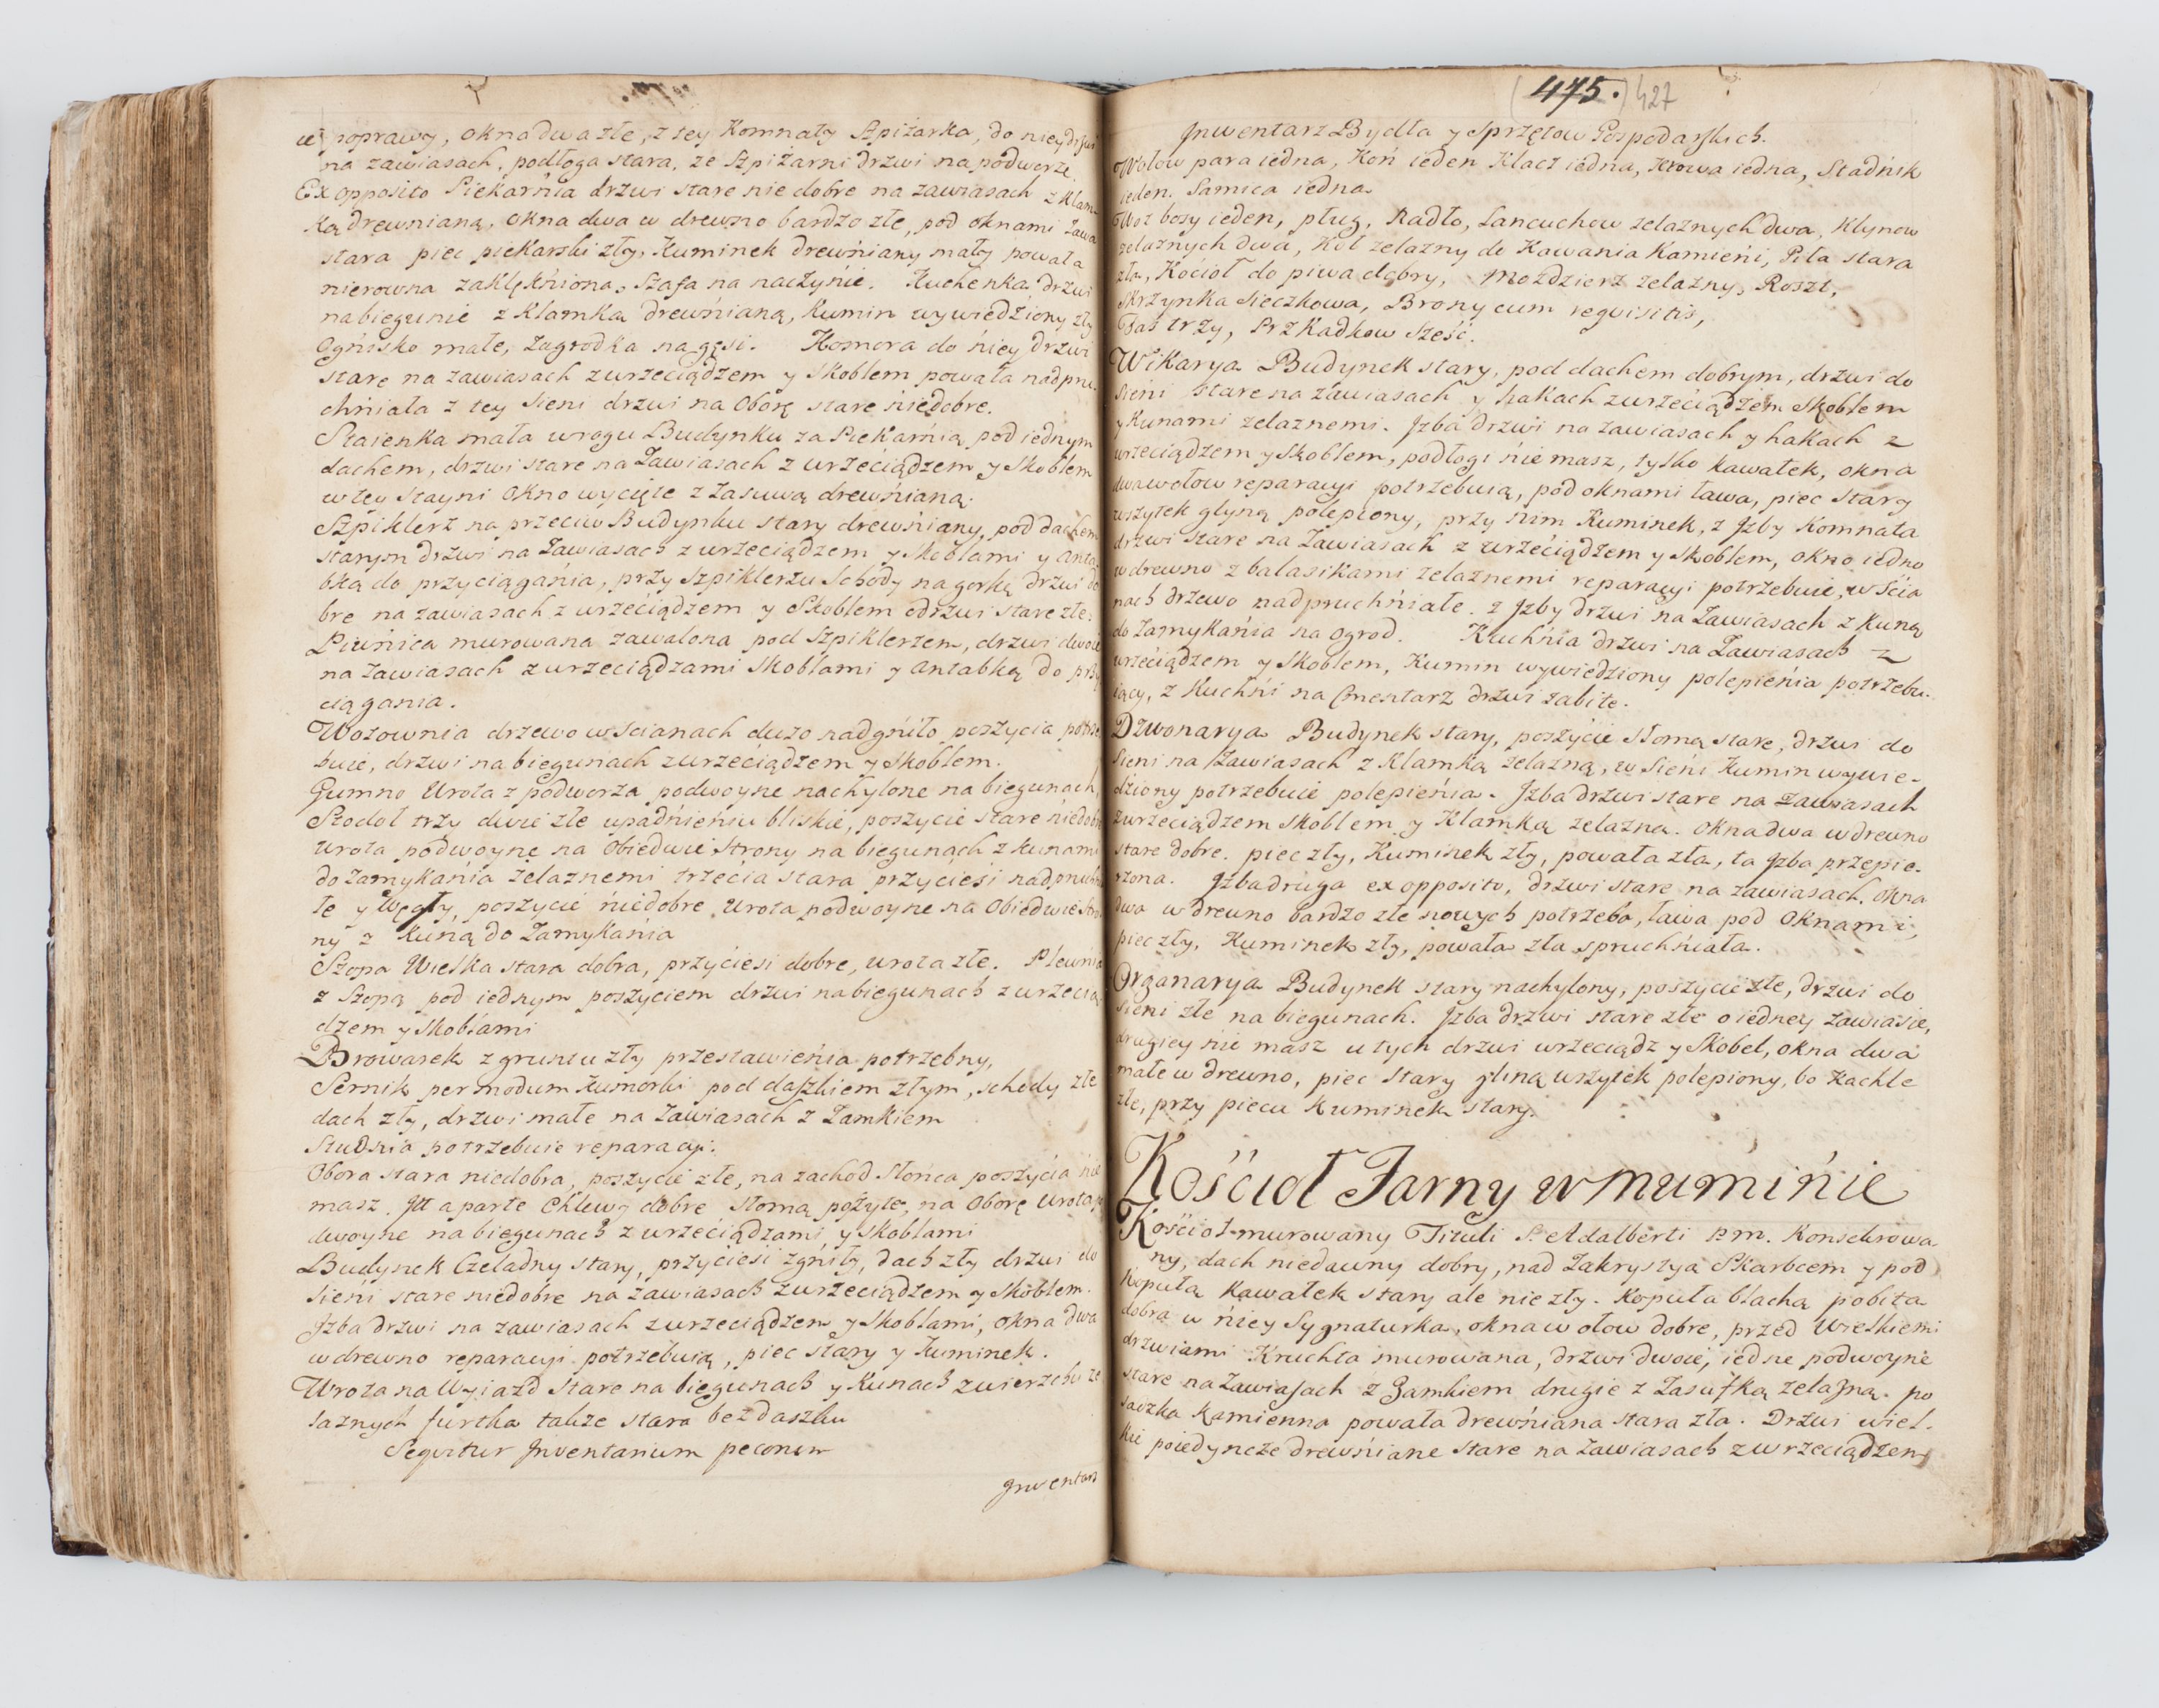 poprawy, okna dwa złe, z tey Komnaty Szpiżarka, do niey drzwi
na zawiasach, podłoga stara, ze Szpiżarni drzwi na podworze.
Ex opposito Piekarńia drzwi stare nie dobre na zawiasach z Klam-
ką drewnianą, okna dwa w drewno bardzo złe, pod oknami Ława
stara piec piekarski zły, Kuminek drewńiany mały powała
nierowna zaklękńiona, Szafa na naczyńie. Kuchenka drzwi
na biegunie z Klamką drewńianą, Kumin wywiedźiony zły
Ognisko małe, Zagrodka na gęsi. Komora do ńiey drzwi
stare na zawiasach z wrzeciądzem y Skoblem powała nadpru-
chńiała z tey Sieni drzwi na Oborę stare ńiedobre.
Staienka mała w rogu Budynku za Piekarńią pod iednym
dachem, drzwi stare na Zawiasach z wrzećiądzem y Skoblem
w tey Stayni Okno wycięte z Zasuwą drewńianą.
Szpiklerz na przeciw Budynku stary drewńiany, pod dachem
starym drzwi na Zawiasach z wrzeciądzem y Skoblami y Anta-
bką do przyciągańia, przy Szpiklerzu Schody na gorkę drzwi do
bre na zawiasach z wrzećiądzem y Skoblem odrzwi stare złe.
Piwńica murowana zawalona pod Szpiklerzem, drzwi dwoie
na Zawiasach z wrzeciądzami Skoblami y Antabką do przy
ciągania.
Wozownia drzewo w Scianach duzo nadgńiło poszycia potrze
buie, drzwi na biegunach z wrzećiądzem y Skoblem.
Gumno Wrota z podworza podwoyne nachylone na biegunach,
Stodoł trzy dwie złe upadńieńiu bliskie, poszycie stare ńiedobre
wrota podwoyne na Obiedwie Strony na biegunach z kunami
do Zamykańia Zelaznemi trzecia stara przyciesi nadpruchńia
łe y Węgły, poszycie ńiedobre Wrota podwoyne na Obiedwie stro
ny z Kuną do Zamykańia
Szopa Wielka stara dobra, przyciesi dobre, wrota złe. Plewnia
z Szopą pod iednym poszyciem drzwi na biegunach z wrzecią
dzem y Skoblami
Browarek z gruntu zły przestawieńia potrzebny,
Sernik per modum Kumorki pod daszkiem złym, schody złe
dach zły, drzwi małe na Zawiasach z Zamkiem
Studnia potrzebuie reparacyi.
Obora stara niedobra, poszycie złe, na zachod Słońca poszyćia nie
masz. Itt aparte Chlewy dobre Słomą poszyte, na Oborę wrota po
dwoyne na biegunach z wrzećiądzami y skoblami
Budynek Czeladny stary, przyciesi zgńiły, dach zły drzwi do
Sieni stare niedobre na zawiasach z wrzeciądzem y Skoblem.
Izba drzwi na zawiasach z wrzeciądzem y Skoblami, okna dwa
w drewno reparacyi potrzebuią, piec stary y Kuminek.
Wrota na Wyiazd stare na biegunach y Kunach z wierzchu że
laznych furtka takze stara bez daszku
Sequitur Inventarium pecorum
Inwentarz
(475.) 427
Inwentarz Bydła y Sprzętow Gospodarskich.
Wołow para iedna, Koń ieden Klacz iedna, Krowa iedna, Stadńik
ieden. Samica iedna
Woz bosy ieden, pług, Radło, Lancuchow zelaznych dwa, Klynow
zelaznych dwa, Kół zelazny do Kowania Kamieńi, Piła stara
zła, Kocioł do piwa dobry, Mozdzierz zelazny, Roszt,
Skrzynka Sieczkowa, Brony cum requisitis,
Fas trzy, Przkadkow Sześć.
Wikarya Budynek stary, pod dachem dobrym, drzwi do
Sieni stare na zawiasach y hakach z wrzećiądzem Skoblem
y Kunami zelaznemi. Izba drzwi na zawiasach y hakach z
wrzeciądzem y Skoblem, podłogi nie masz, tylko kawałek, okna
dwa w ołow reparacyi potrzebuią, pod oknami ława, piec stary
wszytek glyną polepiony, przy nim Kuminek, z Izby Komnata
drzwi stare na Zawiasach z wrzećiądzem y Skoblem, okno iedno
w drewno z balasikami zelaznemi reparacyi potrzebuie, w Ścia
nach drzewo nadpruchńiałe. z Izby drzwi na Zawiasach z Kuną
do Zamykańia na ogrod. Kuchńia drzwi na Zawiasach z
wrzećiądzem y Skoblem, Kumin wywiedziony polepieńia potrzebu-
iący, z Kuchńi na Cmentarz drzwi zabite.
Dzwonarya Budynek stary, poszycie słomą stare, drzwi do
Sieni na Zawiasach z Klamką zelazną, w Sieńi Kumin wywie-
dziony potrzebuie polepieńia. Izba drzwi stare na Zawiasach
z wrzeciądzem Skoblem y Klamką zelazna. okna dwa w drewno
stare dobre. piec zły, Kuminek zły, powała zła, ta Izba przepie-
rzona. Izba druga ex opposito, drzwi stare na zawiasach, okna
dwa w drewno bardzo złe nowych potrzeba, ława pod Oknami,
piec zły, Kuminek zły, powała zła spruchńiała.
Organarya Budynek stary nachylony, poszycie złe, drzwi do
Sieni złe na biegunach. Izba drzwi stare złe o iedney zawiasie,
drugiey nie masz u tych drzwi wrzeciądz y Skobel, okna dwa
małe w drewno, piec stary gliną wszytek polepiony, bo Kachle
złe, przy piecu Kuminek stary.
Kościoł Farny w Mumińie
Kościoł murowany Tituli S. Adalberti P.M. Konsekrowa
ny, dach niedawny dobry, nad Zakrystyą Skarbcem y pod
Kopułą Kawałek stary ale nie zły. Kopuła blachą pobita
dobra w ńiey Sygnaturka, okna w ołow dobre, przed Wielkiemi
drzwiami Kruchta murowana, drzwi dwoie, iedne podwoyne
stare na Zawiasach z Zamkiem drugie z Zasufką zelazną. po
sadzka Kamienna powała drewńiana stara zła. Drzwi wiel-
kie poiedyncze drewńiane stare na Zawiasach z wrzeciądzem